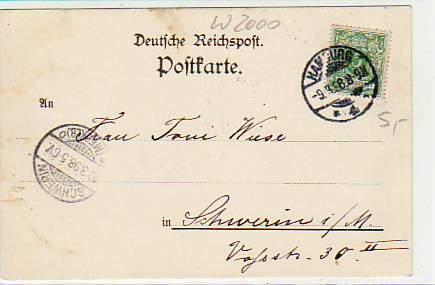 W 2000
Deutsche Reichspost.
Postkarte.
HAMBURG
5,-
An
Frau Toni Wiese
SCHWERIN
(MECKLB)
in Schwerin i/M.
Vossstr. 30 II